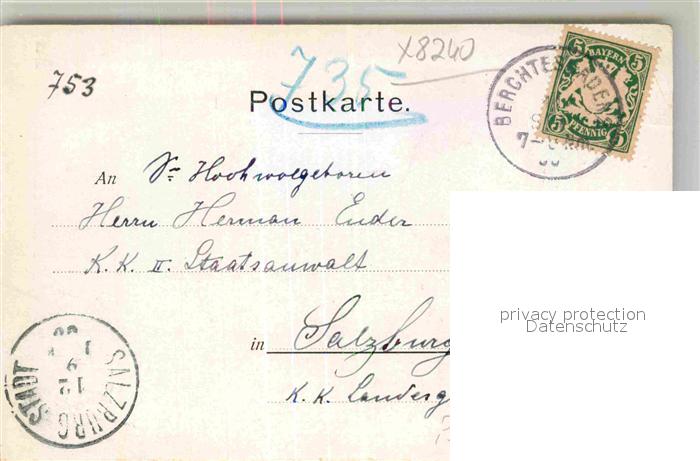 x8240
753
735
Postkarte.
BAYERN
5 5
5 5
PFENNIG
BERCHTESGADEN
An Sr. Hochwolgeboren
Herrn Herman Ender
K. K. II. Staatsanwalt
in Salzburg
K. K. Landesg
privacy protection
Datenschutz
SALZBURG STADT
12
9
00